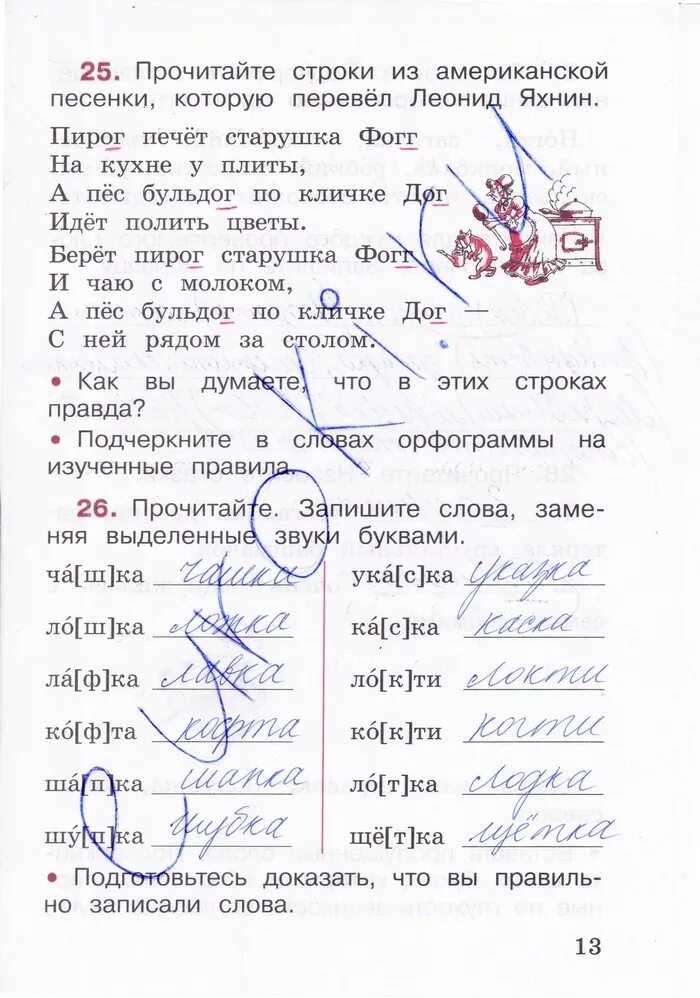 25. Прочитайте строки из американской
песенки, которую перевёл Леонид Яхнин.
Пирог печёт старушка Фогг
На кухне у плиты,
А пёс бульдог по кличке Дог
Идёт полить цветы.
Берёт пирог старушка Фогг
И чаю с молоком,
А пёс бульдог по кличке Дог —
С ней рядом за столом.
• Как вы думаете, что в этих строках
правда?
• Подчеркните в словах орфограммы на
изученные правила.
26. Прочитайте. Запишите слова, заме-
няя выделенные звуки буквами.
ча́[ш]ка чашка ука́[с]ка указка
ло́[ш]ка ложка ка́[с]ка каска
ла́[ф]ка лавка ло́[к]ти локти
ко́[ф]та кофта ко́[к]ти когти
ша́[п]ка шапка ло́[т]ка лодка
шу́[п]ка шубка щё[т]ка щётка
• Подготовьтесь доказать, что вы правиль-
но записали слова.
13